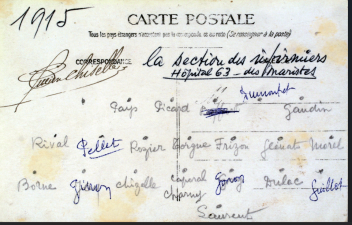 1915
CARTE POSTALE
Tous les pays étrangers n'acceptent pas la correspondance au recto (Se renseigner à la poste)
CORRESPONDANCE
La Section des infirmiers
Hôpital 63 - des maristes
Pays Picard Gaudin
Rival Pellet Rozier Frizon Morel
Borne Chizelle Caporal Charny Dulac Guillet
Laurent